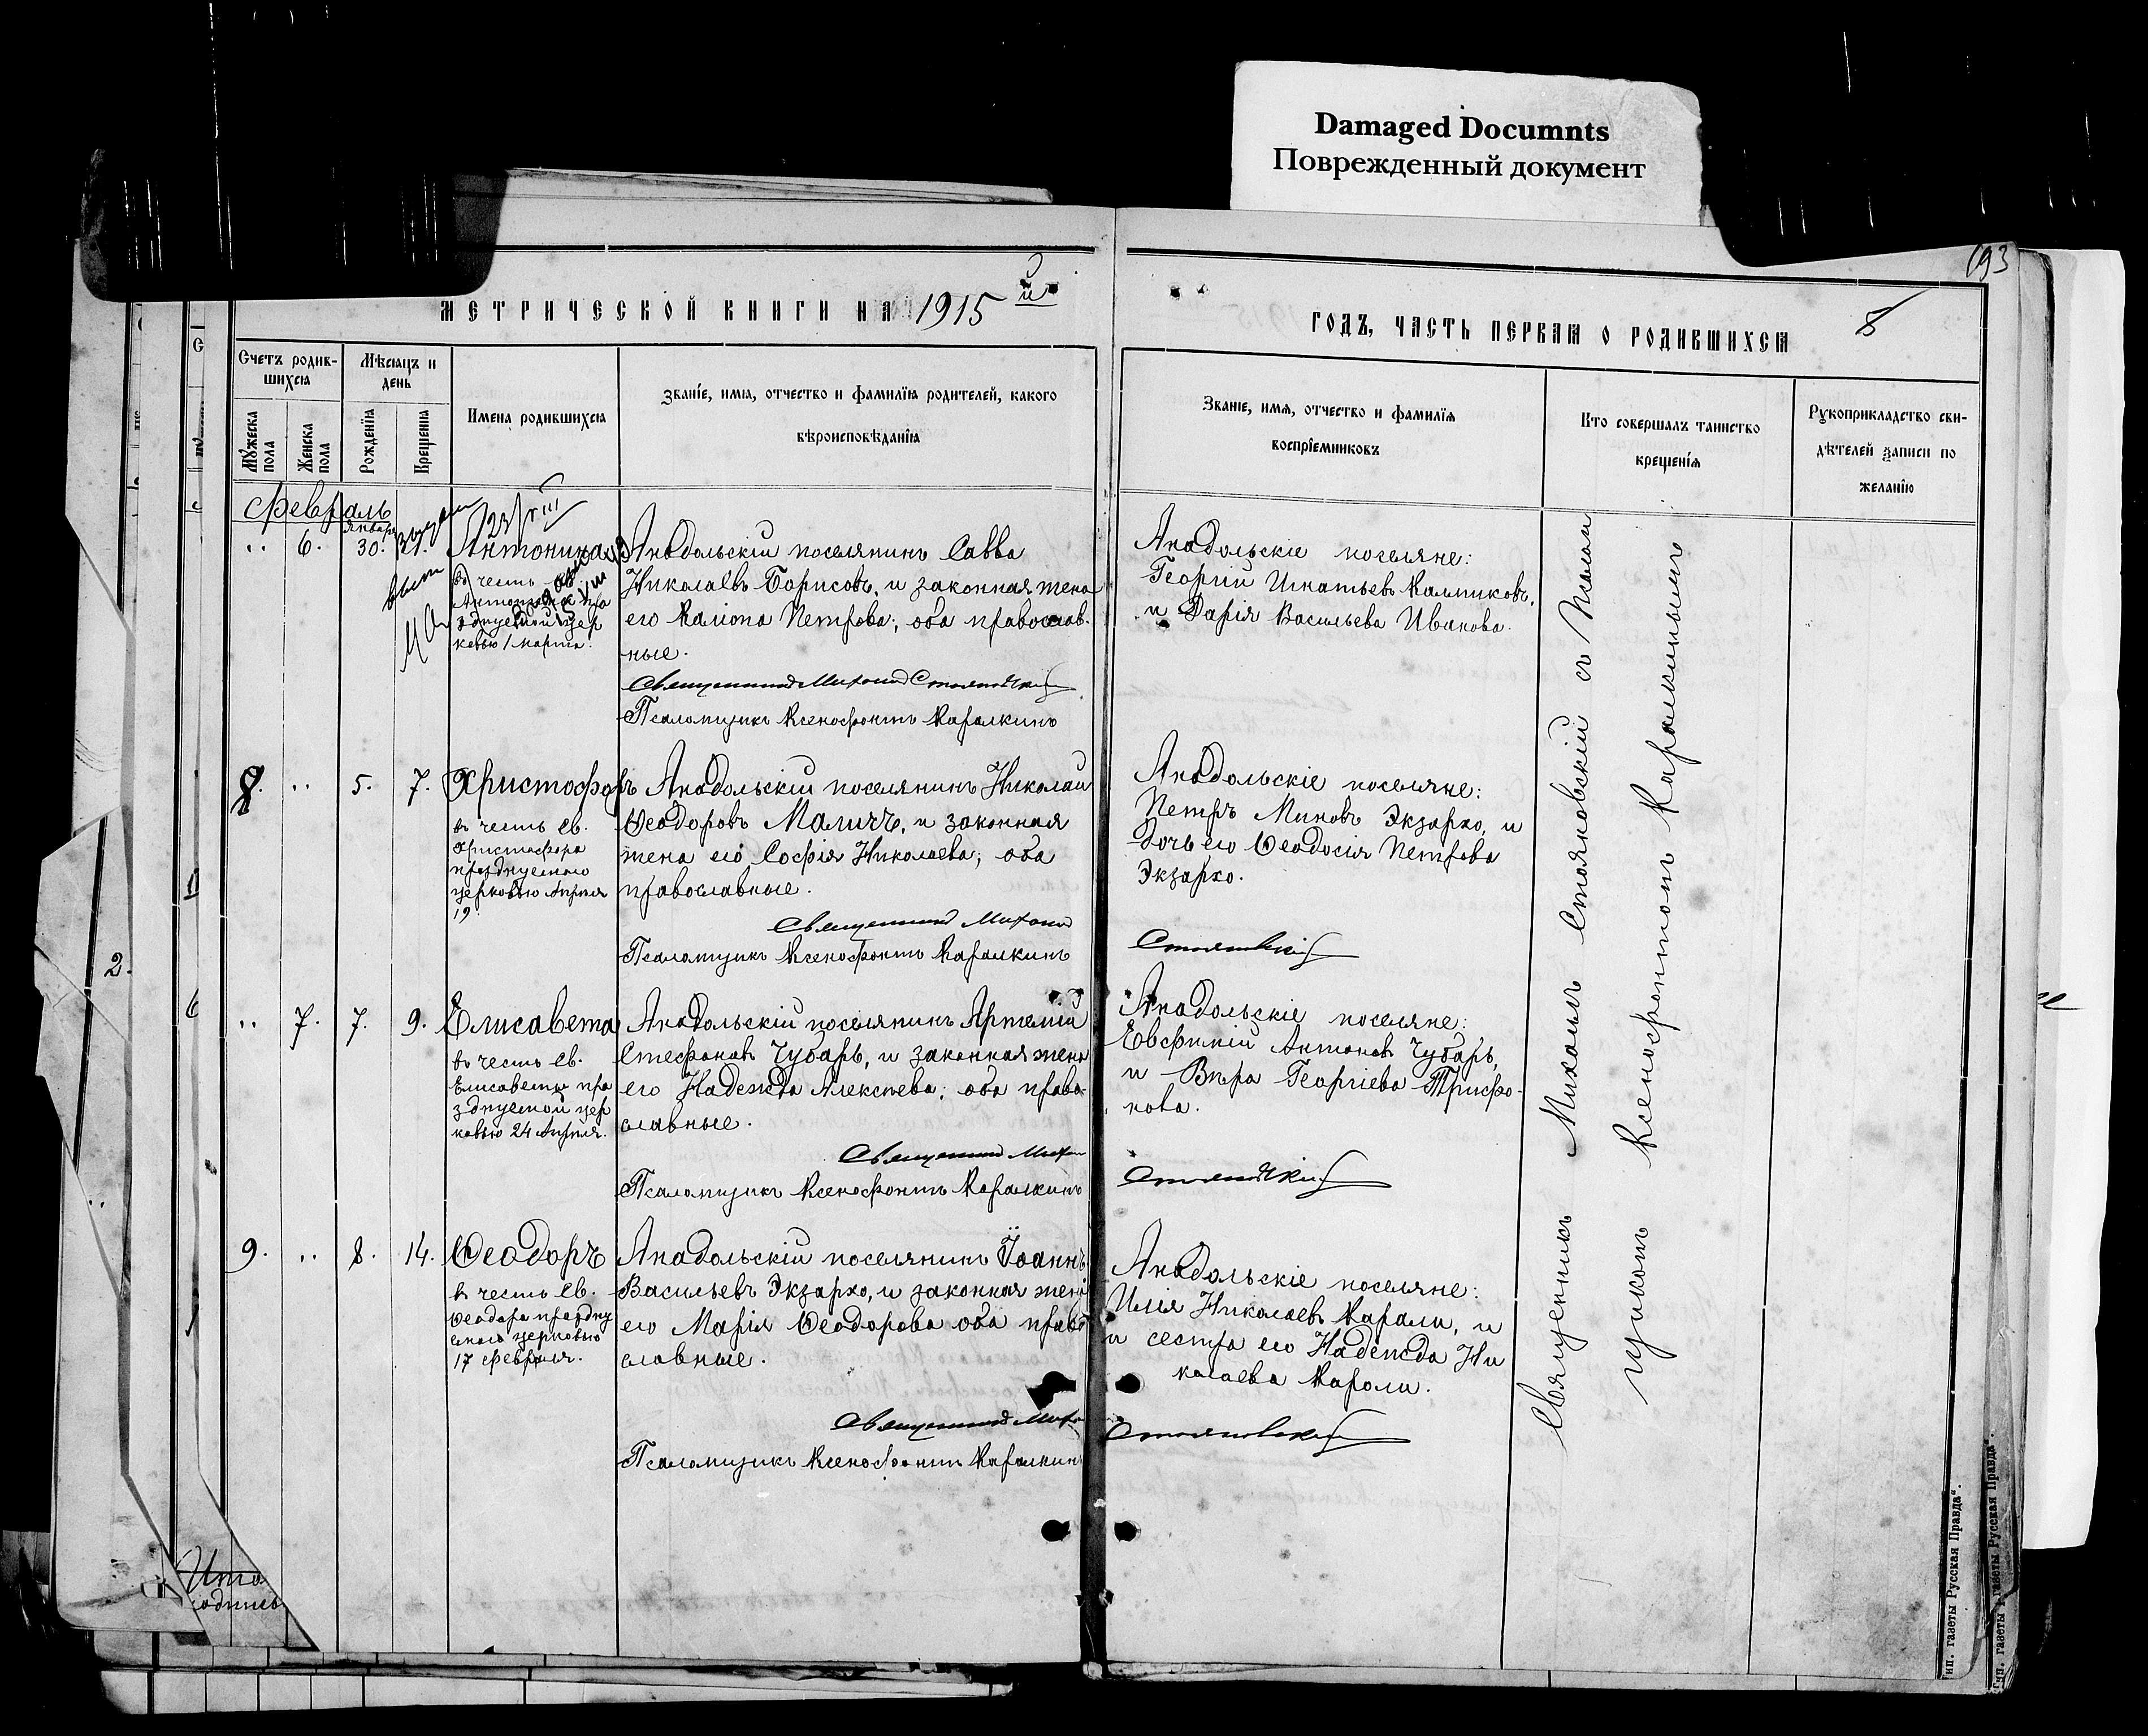 Damaged Documnts
Поврежденный документ
193
МЕТРИЧЕСКОЙ КНИГИ НА 1915 й
ГОДЪ, ЧАСТЬ ПЕРВАЯ О РОДИВШИХСЯ
8
Счетъ родив-
шихся
Мѣсяцъ и
день
Мужеска пола
Женска пола
Рожденія
Крещенія
Имена родившихся
Званіе, имя, отчество и фамилія родителей, какого
вѣроисповѣданія
Званіе, имя, отчество и фамилія
воспріемниковъ
Кто совершалъ таинство
крещенія
Рукоприкладство сви-
дѣтелей записи по
желанію
Февраль
января
6. 30. 31. Антонина
въ честь св.
Антонины пра
зднуемой цер
ковью 1 марта.
23/VIII
Анадольскій поселянинъ Савва
Николаевъ Борисовъ, и законная жена
его Каліопа Петрова; оба православ-
ные.
Священникъ Михаилъ Стояновскій
Псаломщикъ Ксенофонтъ Каралкинъ
Анадольскіе поселяне:
Георгій Игнатьевъ Калпиковъ,
и Дарія Васильева Иванова.
8. 5. 7. Христофоръ
въ честь св.
Христофора
празднуемаго
церковью Апрѣля
19.
Анадольскій поселянинъ Николай
Ѳеодоровъ Маличъ, и законная
жена его Софія Николаева; оба
православные.
Священникъ Михаилъ
Псаломщикъ Ксенофонтъ Каралкинъ
Анадольскіе поселяне:
Петръ Миновъ Экзархо, и
дочь его Ѳеодосія Петрова
Экзархо.
Стояновскій
7. 7. 9. Елисавета
въ честь св.
Елисаветы пра
зднуемой цер
ковью 24 Апрѣля.
Анадольскій поселянинъ Артемій
Стефановъ Чубарь, и законная жена
его Надежда Алексѣева; оба право
славные.
Священникъ Михаилъ
Псаломщикъ Ксенофонтъ Каралкинъ
Анадольскіе поселяне:
Евфимій Антоновъ Чубарь,
и Вѣра Георгіева Трифо-
нова.
Стояновскій
9. 8. 14. Ѳеодоръ
въ честь св.
Ѳеодора праздну
емаго церковью
17 февраля.
Анадольскій поселянинъ Іоаннъ
Васильевъ Экзархо, и законная жена
его Марія Ѳеодорова оба право
славные.
Священникъ Михаилъ
Псаломщикъ Ксенофонтъ Каралкинъ
Анадольскіе поселяне:
Илія Николаевъ Карали, и
и сестра его Надежда Ни
колаева Карали.
Стояновскій
Священникъ Михаилъ Стояновскій съ Псалом
щикомъ Ксенофонтомъ Каралкинымъ
2.
Тип. газеты Русская Правда".